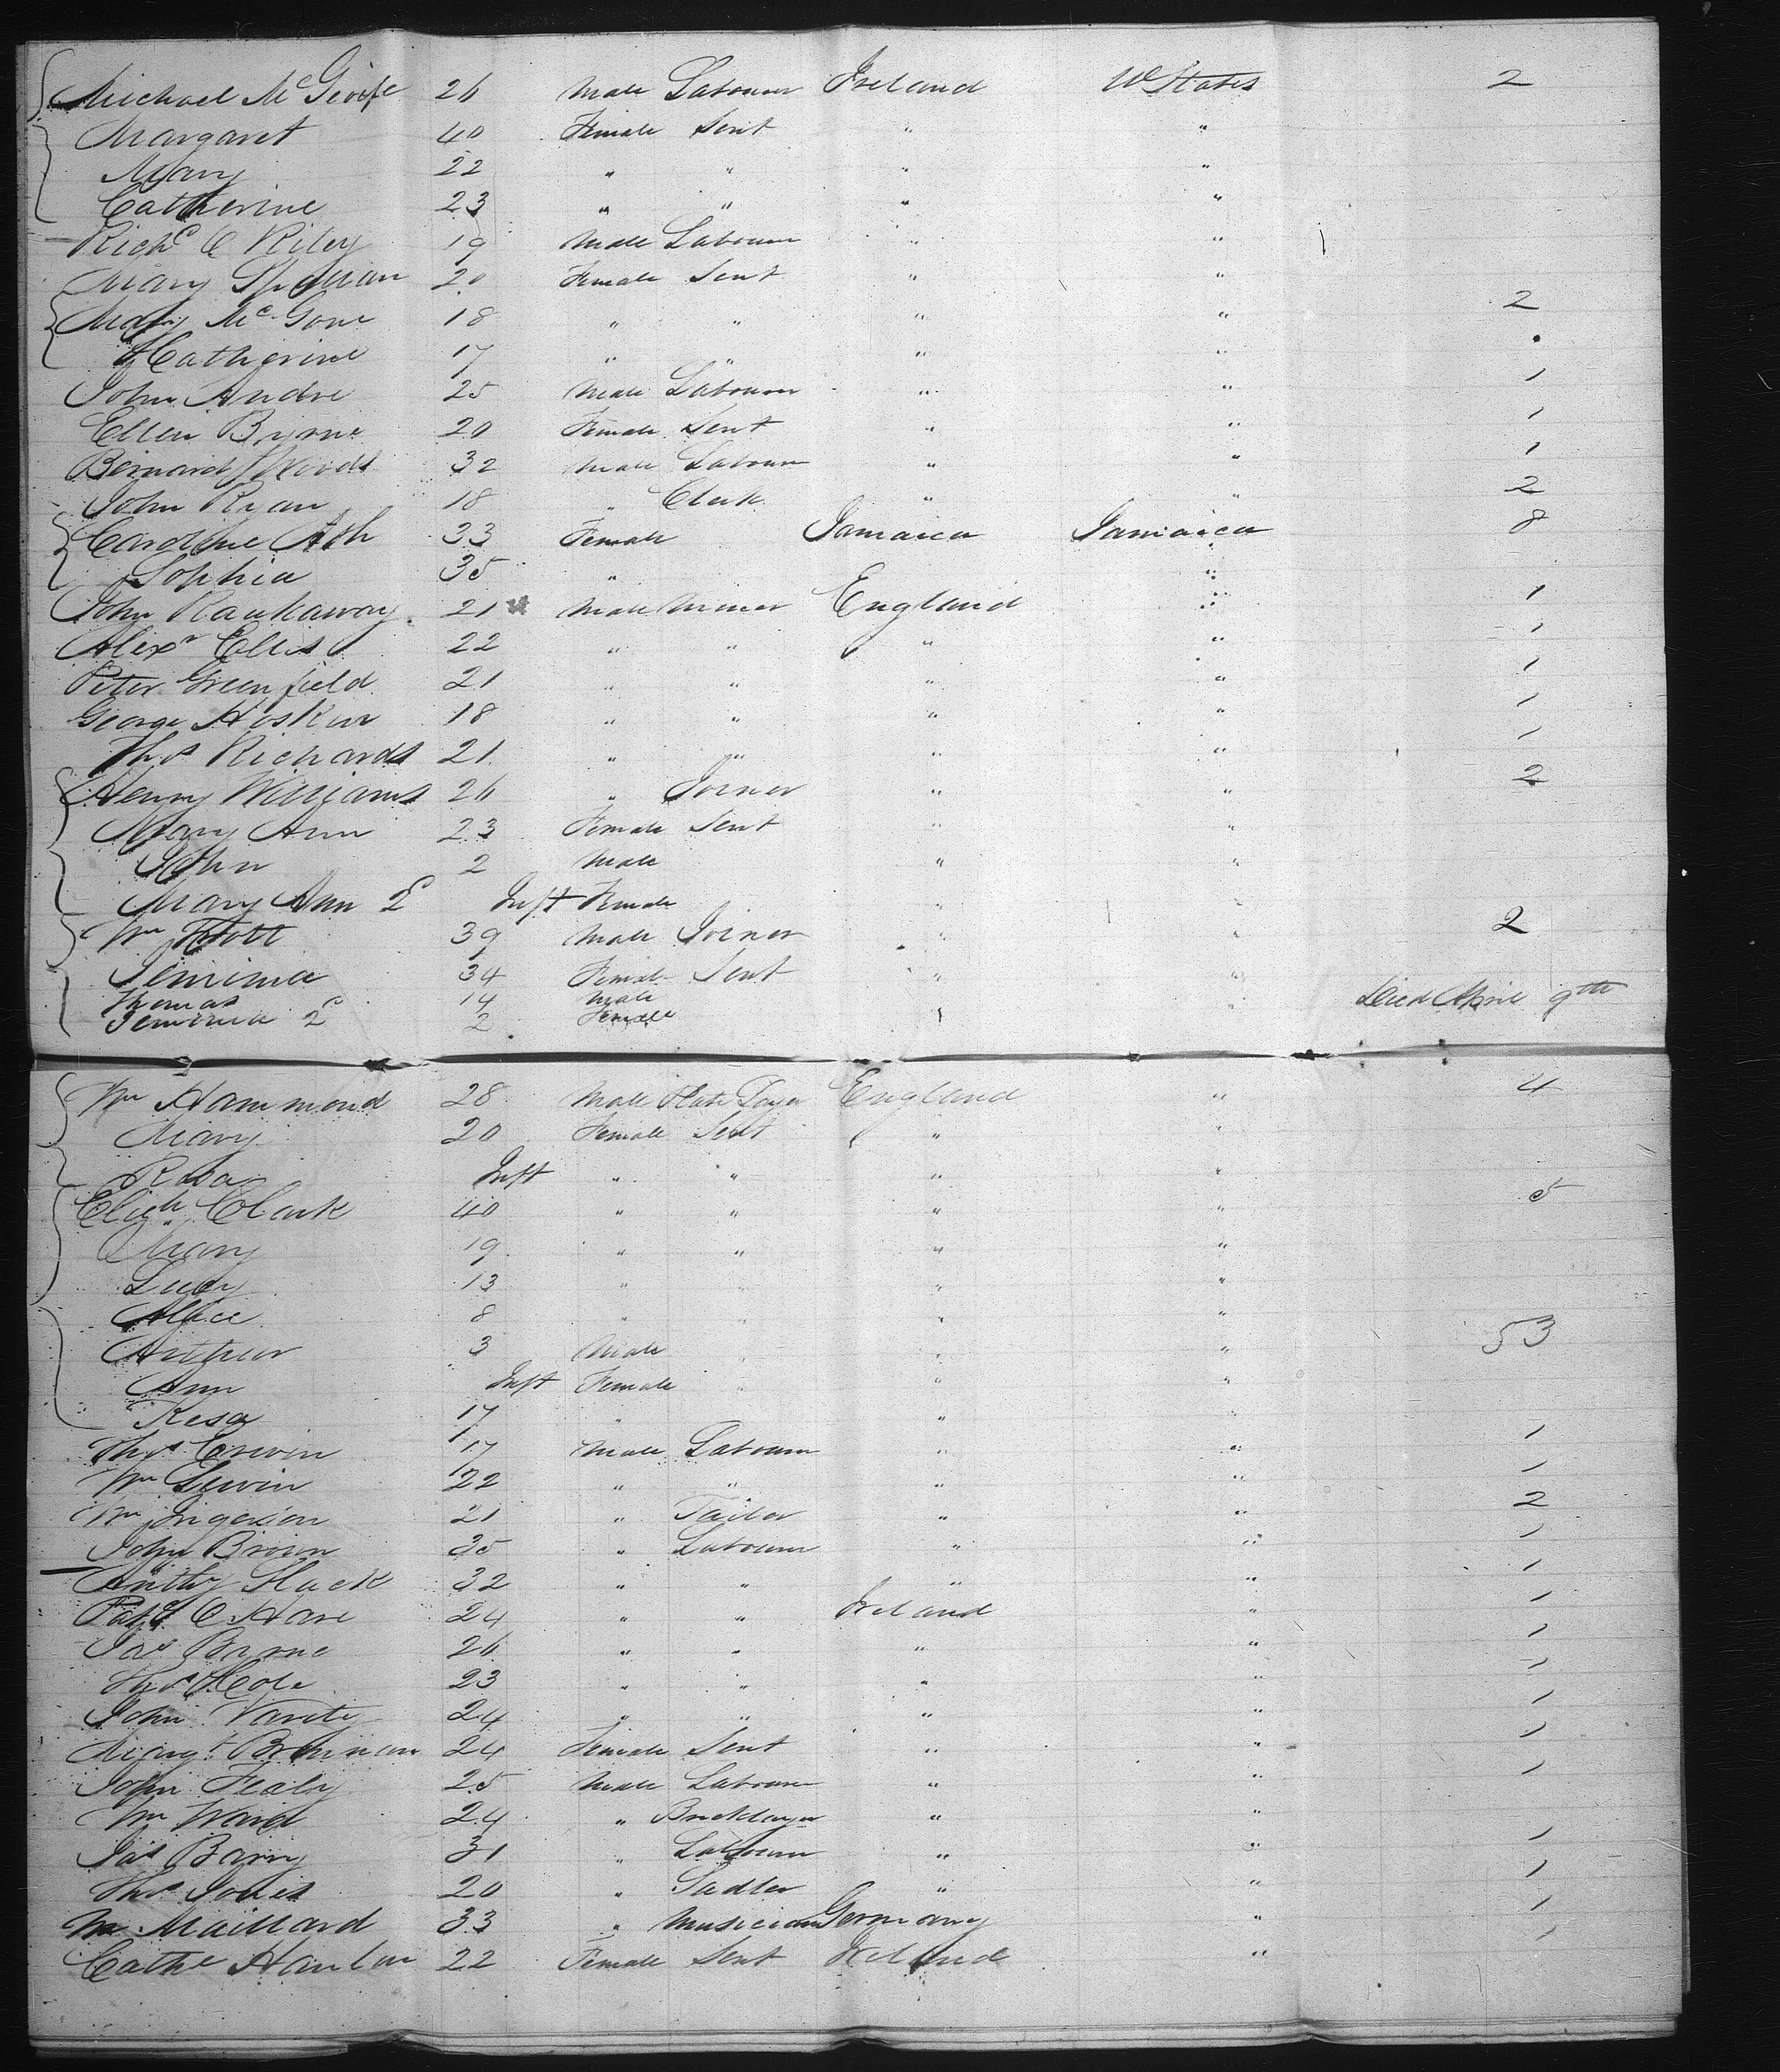 Michael McGivife 26 Male Labourer Ireland U States 2
Margaret 40 Female Sent " "
Mary 22 " " " "
Catherine 23 " " " "
Richd C Riley 19 Male Labourer " "
Mary Spelman 20 Female Sent " "
Mary McGowe 18 " " " " 2
Catherine 17 " " " "
John Andre 25 Male Labourer " " 1
Ellen Byrne 20 Female Sent " " 1
Bernard Woods 32 Male Labourer " " 1
John Ryan 18 " Clerk " " 2
Caroline Ash 33 Female Jamaica Jamaica 8
Sophia 35 " "
John Raukaway 21 Male Miner England " 1
Alexr Ellis 22 " " " " 1
Peter Greenfield 21 " " " " 1
George Hoskin 18 " " " " 1
Thos Richards 21 " " " " 1
Henry Williams 26 " Joiner " " 2
Mary Ann 23 Female Sent " "
John 2 Male " "
Mary Ann 2d Inft Female " "
Wm 39 Male Joiner " " 2
Jemima 34 Female Sent " "
Thomas 14 Male "
Jemima 2d 2 Female Died April 9th
Wm Hammond 28 Male Plate Layer England " 4
Mary 20 Female Sent " "
Rosa Inft " " " "
Elizh Clark 40 " " " " 5
Mary 19 " " " "
Lucy 13 " " " "
Alice 8 " " " "
Arthur 3 Male " " " 53
Ann Inft Female " " "
Kesa 17 " " "
Thos Erwin 17 Male Labourer " " 1
Wm Lewin 22 " " " " 1
Wm 21 " Tailor " " 2
John Brown 25 " Labourer " " 1
Anthy Slack 32 " " " " 1
Patk O Hare 24 " " Ireland " 1
Jas Byrne 26 " " " " 1
Thos Cole 23 " " " " 1
John Varity 24 " " " " 1
Margt Brennan 24 Female Sent " " 1
John Fealy 25 Male Labourer " " 1
Wm Ward 24 " Bricklayer " "
Jas Barry 31 " Labourer " " 1
Thos Jones 20 " Sadler " " 1
M Maillard 33 " Musician Germany " 1
Cathe Hanlon 22 Female Sent Ireland " 1